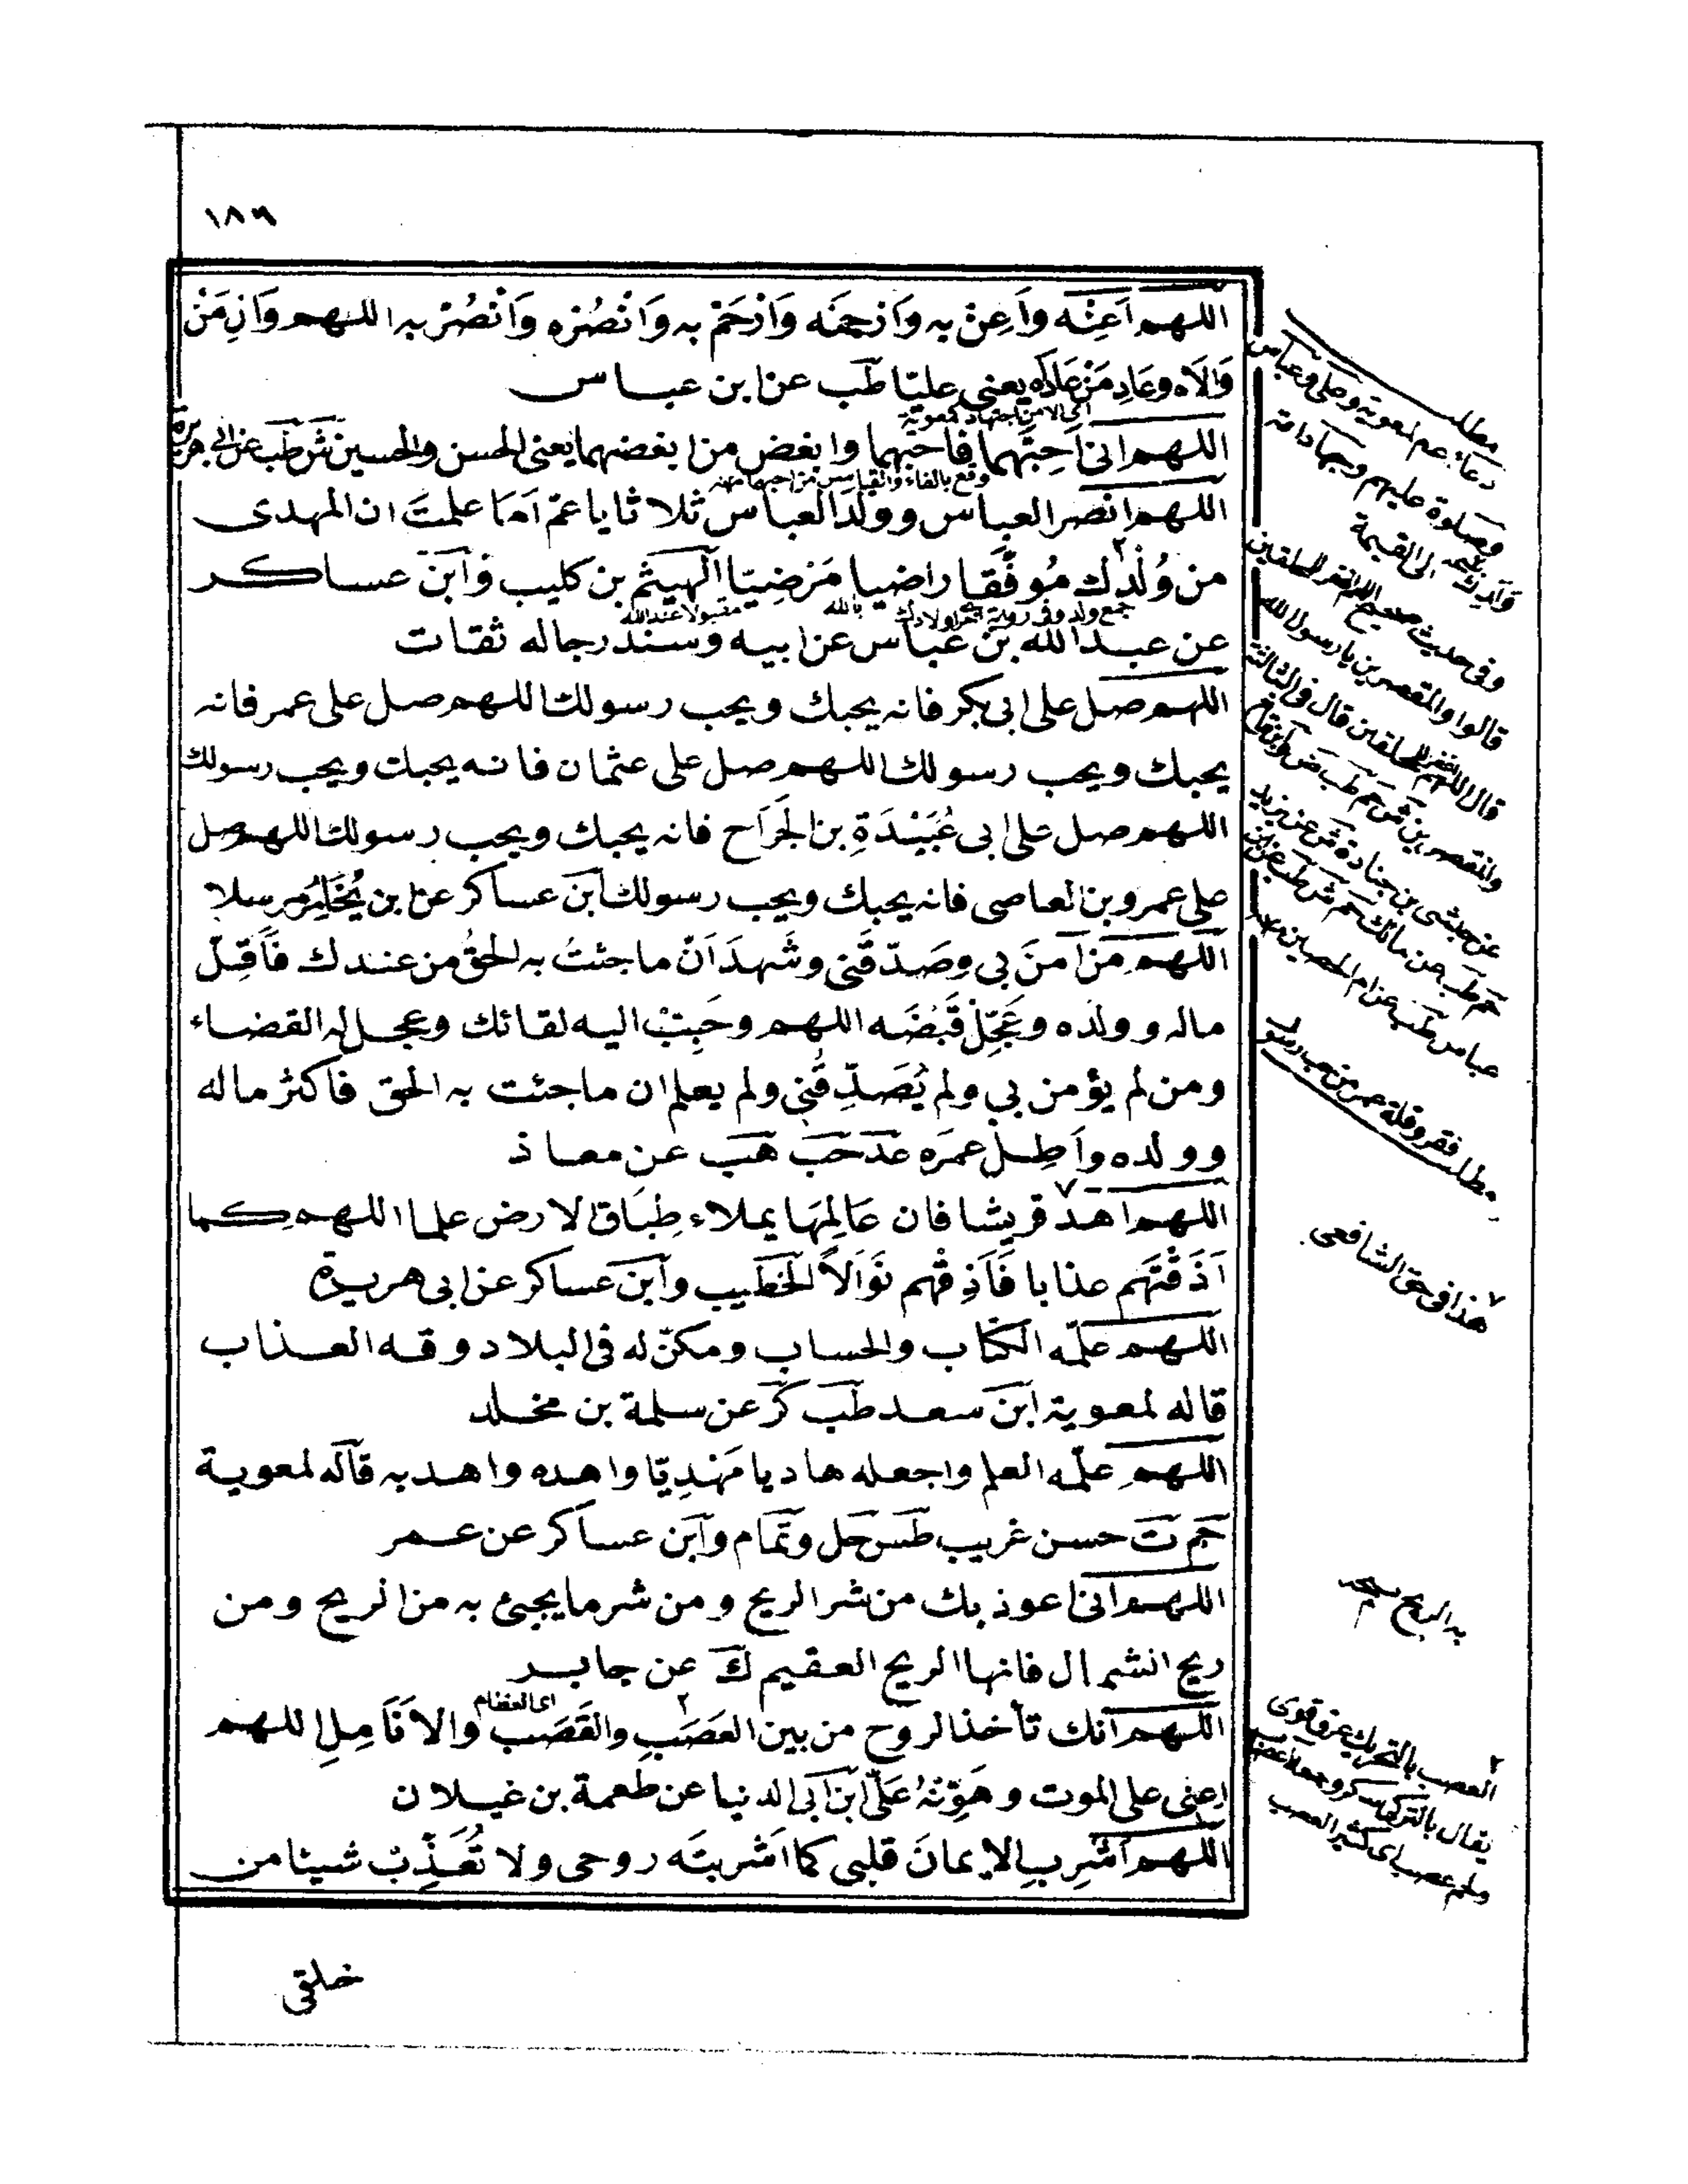 ١٨٦
اللهم اَعِنْه وَاَعِنْ به وَارْحَمْه وَارْحَمْ به وَانْصُرْه وَانْصُرْ به اللهم وَالِ مَنْ
وَالَاه وعَادِ مَنْ عَادَاه يعنى عليّا طب عن ابن عباس
اللهم انى اُحِبُّهما فاحبهما وابغض من ابغضهما يعنى الحسن والحسين ش طب عن ابى هريرة
اللهم انصر العباس وولد العباس ثلاثا يا عمّ اَمَا علمتَ ان المهدى
من وُلْدِك مُوفَّقا راضيا مَرْضِيّا الهيثم بن كليب وابن عساكر
عن عبد الله بن عباس عن ابيه وسند رجاله ثقات
اللهم صل على ابى بكر فانه يحبك ويحب رسولك اللهم صل على عمر فانه
يحبك ويحب رسولك اللهم صل على عثمان فانه يحبك ويحب رسولك
اللهم صل على ابى عُبَيْدَةِ بن الجَرَاح فانه يحبك ويحب رسولك اللهم صل
على عمرو بن العاصى فانه يحبك ويحب رسولك ابن عساكر عن ابن يُخَامِر مرسلا
اللهم مَنْ اَمنَ بى وصَدّقَنى وشَهِدَ اَنّ ما جئتُ به الحقُ من عندك فَاَقِلّ
ماله وولده وعَجِّلْ قَبْضَه اللهم وحَبِبْ اليه لقائك وعجل له القضاء
ومن لم يؤمن بى ولم يُصَدِّقْنِى ولم يعلم ان ما جئت به الحق فاكثر ماله
وولده واَطِل عمرَه عد حب هب عن معاذ
اللهم اهد قريشا فان عَالِمِهَا يملاء طِبَاق الارض علما اللهم كما
اَذَقْتَهم عذابا فَاَذِقْهم نَوَالاً الخطيب وابن عساكر عن ابى هريرة
اللهم علّمه الكتاب والحساب ومكنّ له فى البلاد وقه العذاب
قاله لمعوية ابن سعد طب كر عن سلمة بن مخلد
اللهم علّمه العلم واجعله هاديا مَهْدِيّا واهده واهد به قاله لمعوية
حم ت حسن غريب طس حل وتمام وابن عساكر عن عمر
اللهم انى اعوذ بك من شر الريح ومن شر ما يجئ به من الريح ومن
ريح الشمال فانها الريح العقيم ك عن جابر
اللهم انك تأخذ الروح من بين العَصَبِ والقَصَب والاَنَامِلِ اللهم
اعنى على الموت وهَوِّنْهُ عَلَىّ ابن ابى الدنيا عن طعمة بن غيلان
اللهم اَشْرِبِ الايمانَ قلبى كما اَشْربتَه روحى ولا تُعَذِّبْ شيئا من
خلقى
مطلب
دعائه عم لمعوية وعلى وعباس
وفى حديث صحيح اللهم اغفر للمحلقين
قالوا والمقصرين يا رسول الله
قال اللهم اغفر للمحلقين قال فى الثالثة
مطلب فقر وقلة عمر من يحب رسول
هذا فى حق الشافعى
به الريح نسخه
اى العظام
العصب بالتحريك